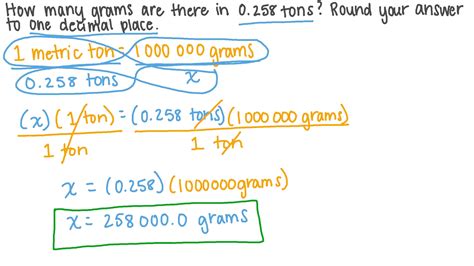 How many grams are there in 0.258 tons? Round your answer
to one decimal place.
1 metric ton = 1 000 000 grams
0.258 tons x
(x)(1 ton) = (0.258 tons)(1000 000 grams)
1 ton 1 ton
x = (0.258)(1000000grams)
x = 258 000.0 grams